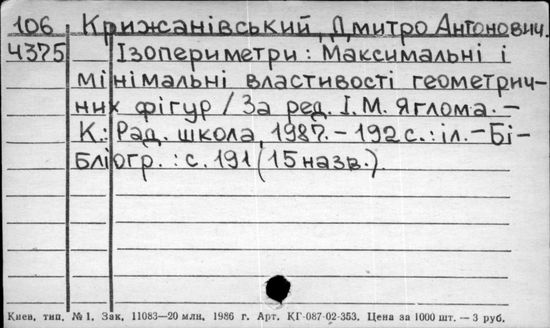 106 Крижанівський, Дмитро Антонович.
4375 Ізопериметри: Максимальні і
мінімальні властивості геометрич-
них фігур / За ред. І.М. Яглома. –
К.: Рад. школа, 1987. – 192 с.: іл. – Бі-
бліогр.: с. 191 (15 назв.).
Киев, тип. № 1. Зак. 11083—20 млн. 1986 г. Арт. КГ-087-02-353. Цена за 1000 шт. — 3 руб.